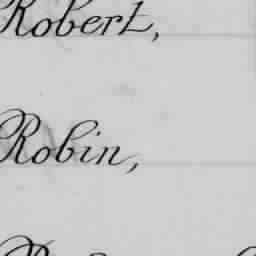 Robert,
Robin,